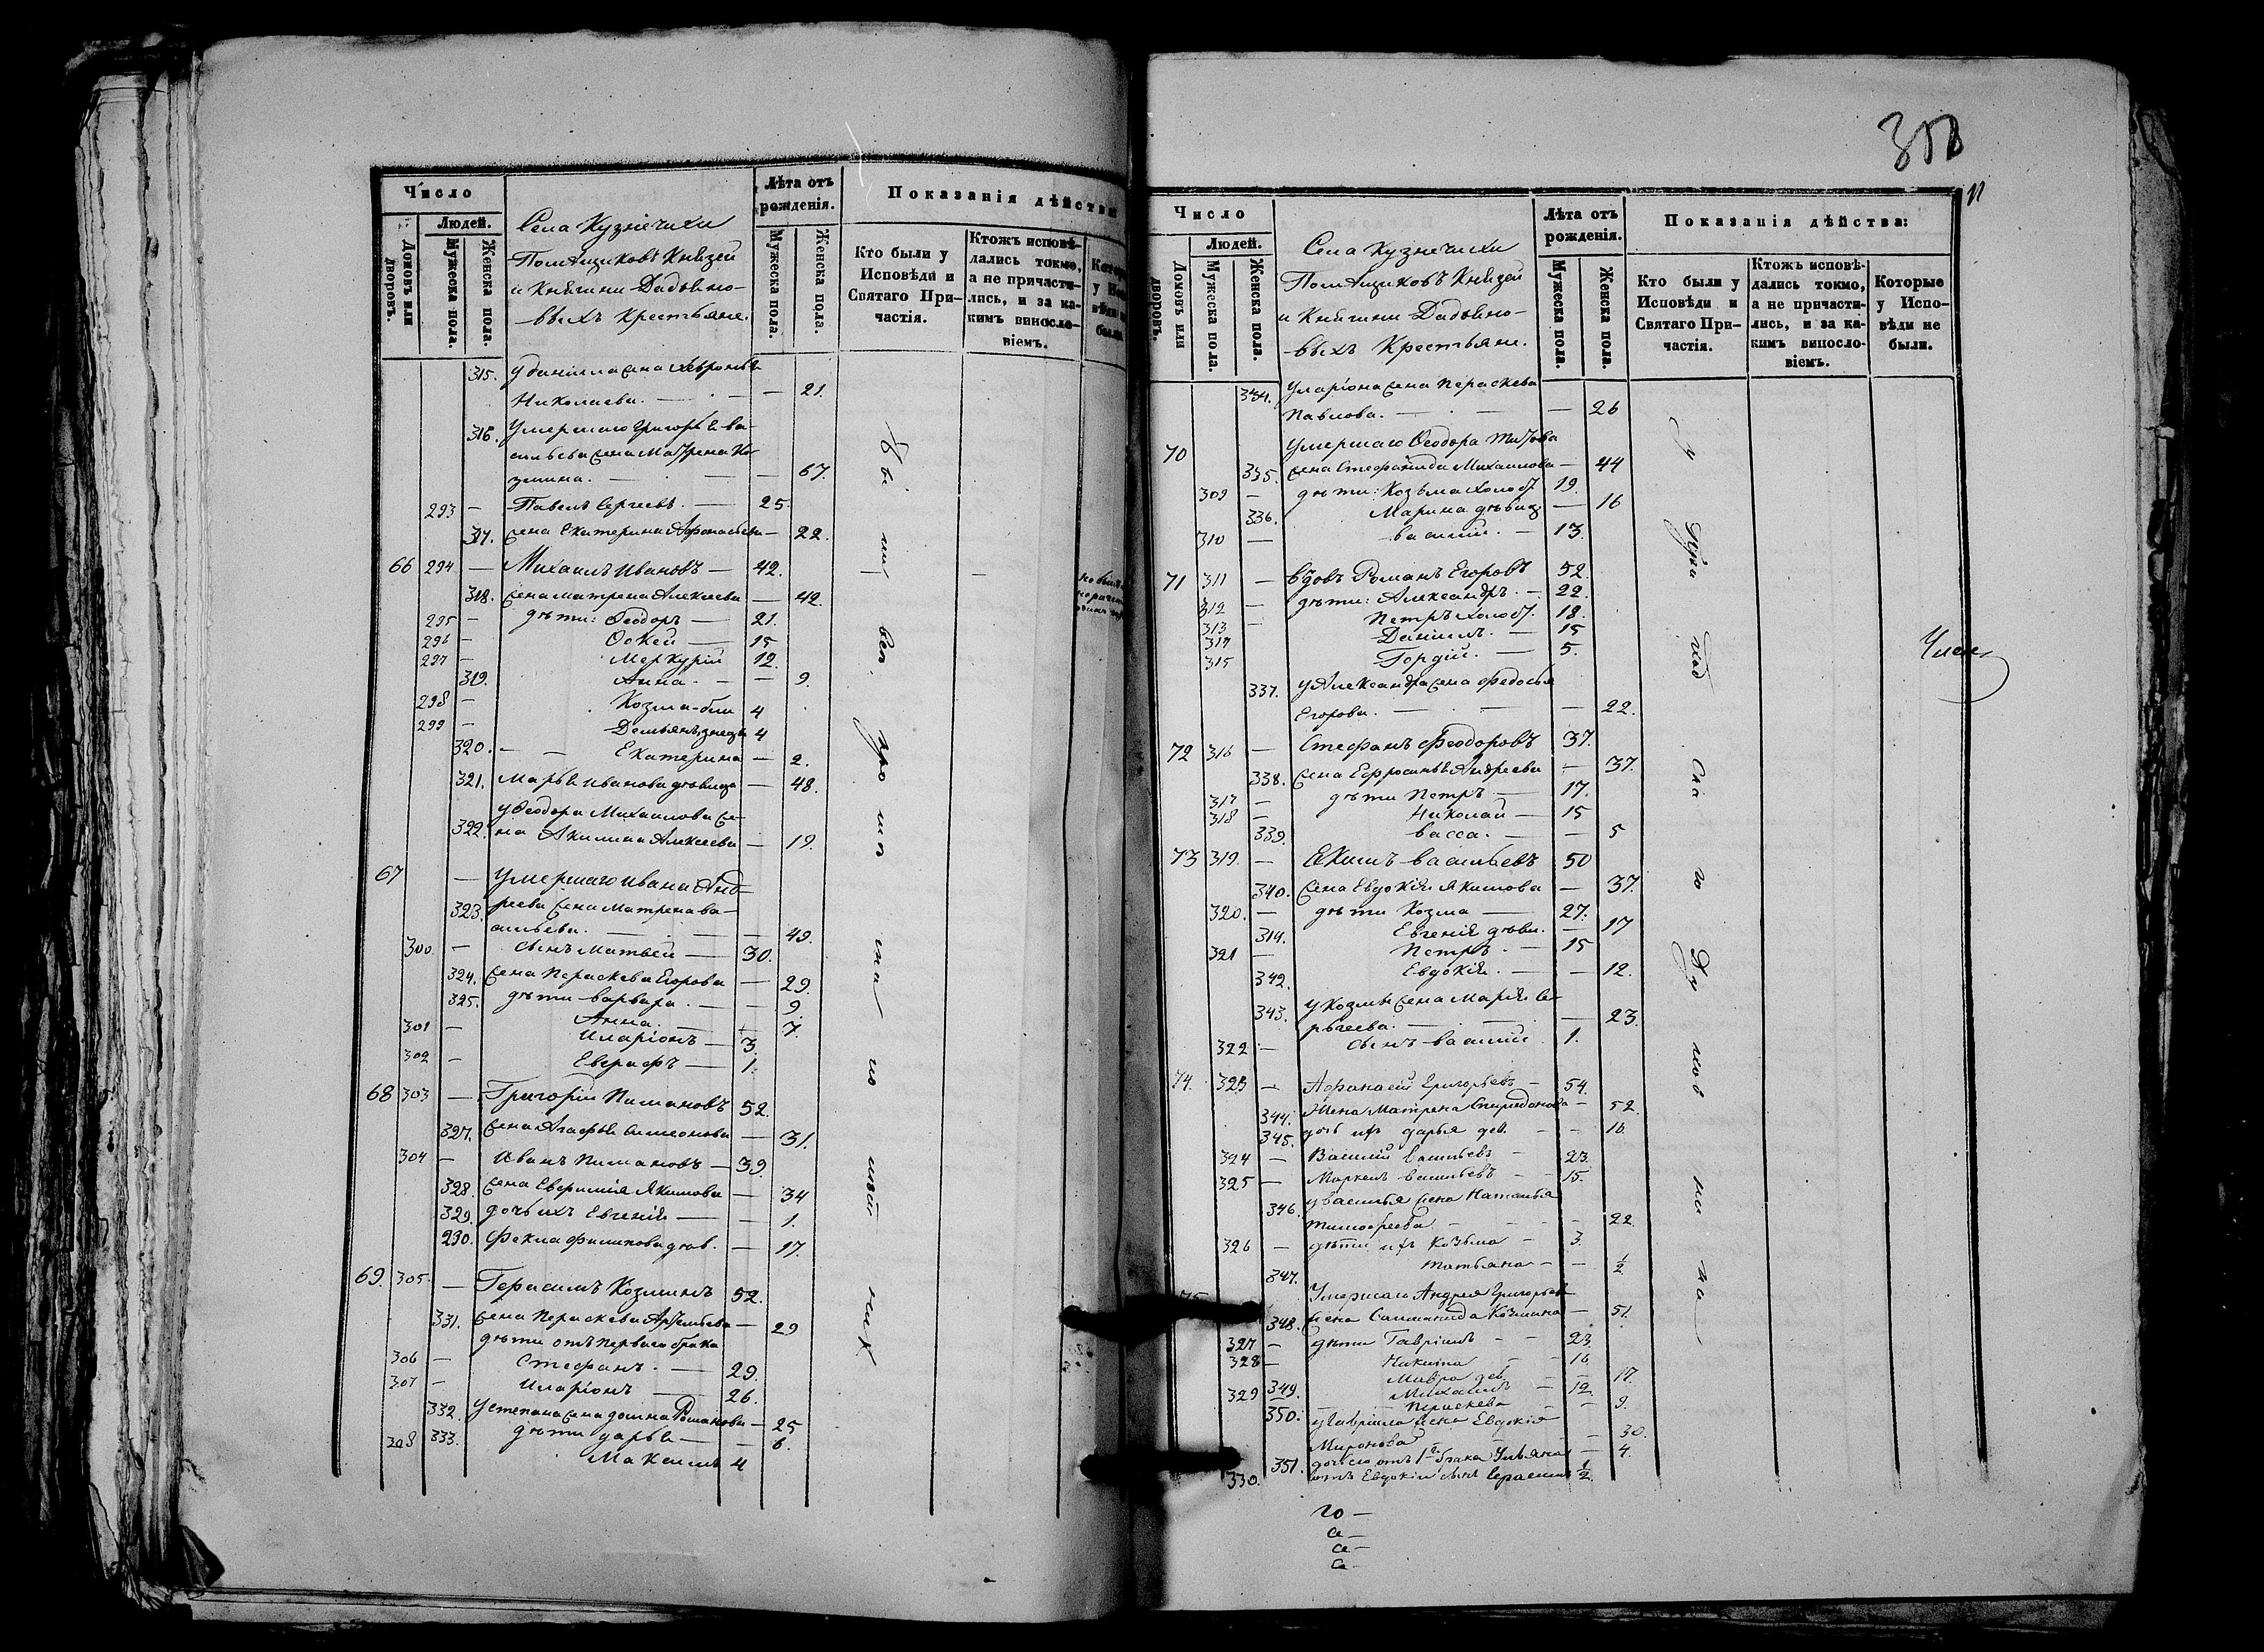 Число
Людей.
Домовъ или дворовъ.
Мужеска пола.
Женска пола.
Села Кузнечихи
Помѣщиковъ Князей
и Княгини Дадьяно-
выхъ Крестьяне.
Лѣта отъ рожденія.
Мужеска пола.
Женска пола.
Показанія дѣйства
Кто были у Исповѣди и Святаго При-частія.
Ктожъ исповѣ-дались токмо, а не причасти-лись, и за ка-кимъ винословіемъ.
315. У данiила жена Хавронья
Николаева. — — 21.
316. Умершаго Григорья Ва-
сильева жена Матрена Ко-
змина. — — 67.
293 — Павелъ Сергеевъ. — 25.
317. жена Екатерина Афонасьева — 22.
66 294 — Михаилъ Ивановъ — 42.
318. жена Матрена Алексеева — 42.
295 — дѣти: Феодоръ — 21.
296 — Фокей — 15
297 — Меркурій 12.
319. Анна. — — 9.
298 — Козма-бли 4
299 — Демьянъ знецы 4
320. — — Екатерина — 2.
321. Марья Иванова дѣвица — 48.
У Феодора Михаилова же-
322. на Акилина Алексеева — 19.
67 — Умершаго Ивана Анд-
323. реева жена Матрена Ва-
сильева. — — 49.
300 — сынъ Матвей — 30.
324. жена Параскева Егорова — 29.
325. дѣти Варвара. — — 9.
Анна. — — 7.
301 — Иларіонъ — 3.
302 — Евграфъ — 1.
68 303 — Григорій Пимановъ 52.
327. жена Агафья Симеонова — 31.
304 — Иванъ Пимановъ — 39.
328. жена Евфимія Якимова — 34
329. дочь ихъ Евгенія — — 1.
230. Фекла Филипова дѣв. — 17.
69. 305 — Герасимъ Козминъ 52.
331. жена Параскева Артемьева — 29
дѣти отъ перваго брака
306 — Стефанъ. — 29.
307 — Иларіонъ — 26.
332. У Степана жена домна Романова — 25
333. дѣти дарья — — 6.
308 Максимъ 4
350
Число
Людей.
Домовъ или дворовъ.
Мужеска пола.
Женска пола.
Села Кузнечихи
Помѣщиковъ Князей
и Княгини Дадьяно-
выхъ Крестьяне.
Лѣта отъ рожденія.
Мужеска пола.
Женска пола.
Показанія дѣйства:
Кто были у Исповѣди и Святаго При-частія.
Ктожъ исповѣ-дались токмо, а не причасти-лись, и за ка-кимъ винословіемъ.
Которые у Испо-вѣди не были.
334. У Ларіона жена Параскева
Павлова. — — — 26
70 Умершаго Феодора Титова
335. жена Стефанида Михаилова — 44
309 — дѣти: Козьма холост. 19.
336. Марина дѣвица — 16
310 — Василій. — 13.
71 311 — Вдовъ Романъ Егоровъ 52.
312 — дѣти: Александръ. — 22.
313 — Петръ холост. 18.
314 Даніилъ. — 15
315 Гордій. — 5.
337. У Александра жена Федосья
Егорова. — — — 22.
72 316 — Стефанъ Феодоровъ 37.
338. жена Ефросинья Андреева — 37.
317 — дѣти Петръ — 17.
318 — Николай — 15
339. Васса. — — 5
73 319. — Екимъ Васильевъ 50
340. жена Евдокія Якимова — 37.
320. — дѣти Козма — 27.
314. Евгенія дѣви. — 17
321 — Петръ. — 15
342. Евдокія. — — 12.
343. У Козмы жена Марія Се-
ргеева. — — — 23.
322 — сынъ Василій 1.
74. 323 — Афанасій Григорьевъ — 54.
344. Жена Матрена Спиридонова — 52.
345. дочь ихъ дарья дев. — — 16.
324 — Василій Васильевъ — 23.
325 — Маркелъ Васильевъ — 15.
346. У Василья жена Наталья
Тимофеева. — — — 22.
326 — дѣти ихъ Козьма — 3.
347. Татьяна — — ½
75 Умершаго Андрея Григорьева
348. жена Саломонида Козмина — 51.
327 — дѣти Гавріилъ — — 23.
328 — Никита — 16
349. Мавра дев. — — 17.
329 Михаилъ — 12.
350. — — Параскева — — 9.
У Гавріила жена Евдокія
Миронова — — 30.
351. дочь его отъ 1го брака Ульяна — 4.
330. отъ Евдокіи сынъ Герасимъ ½